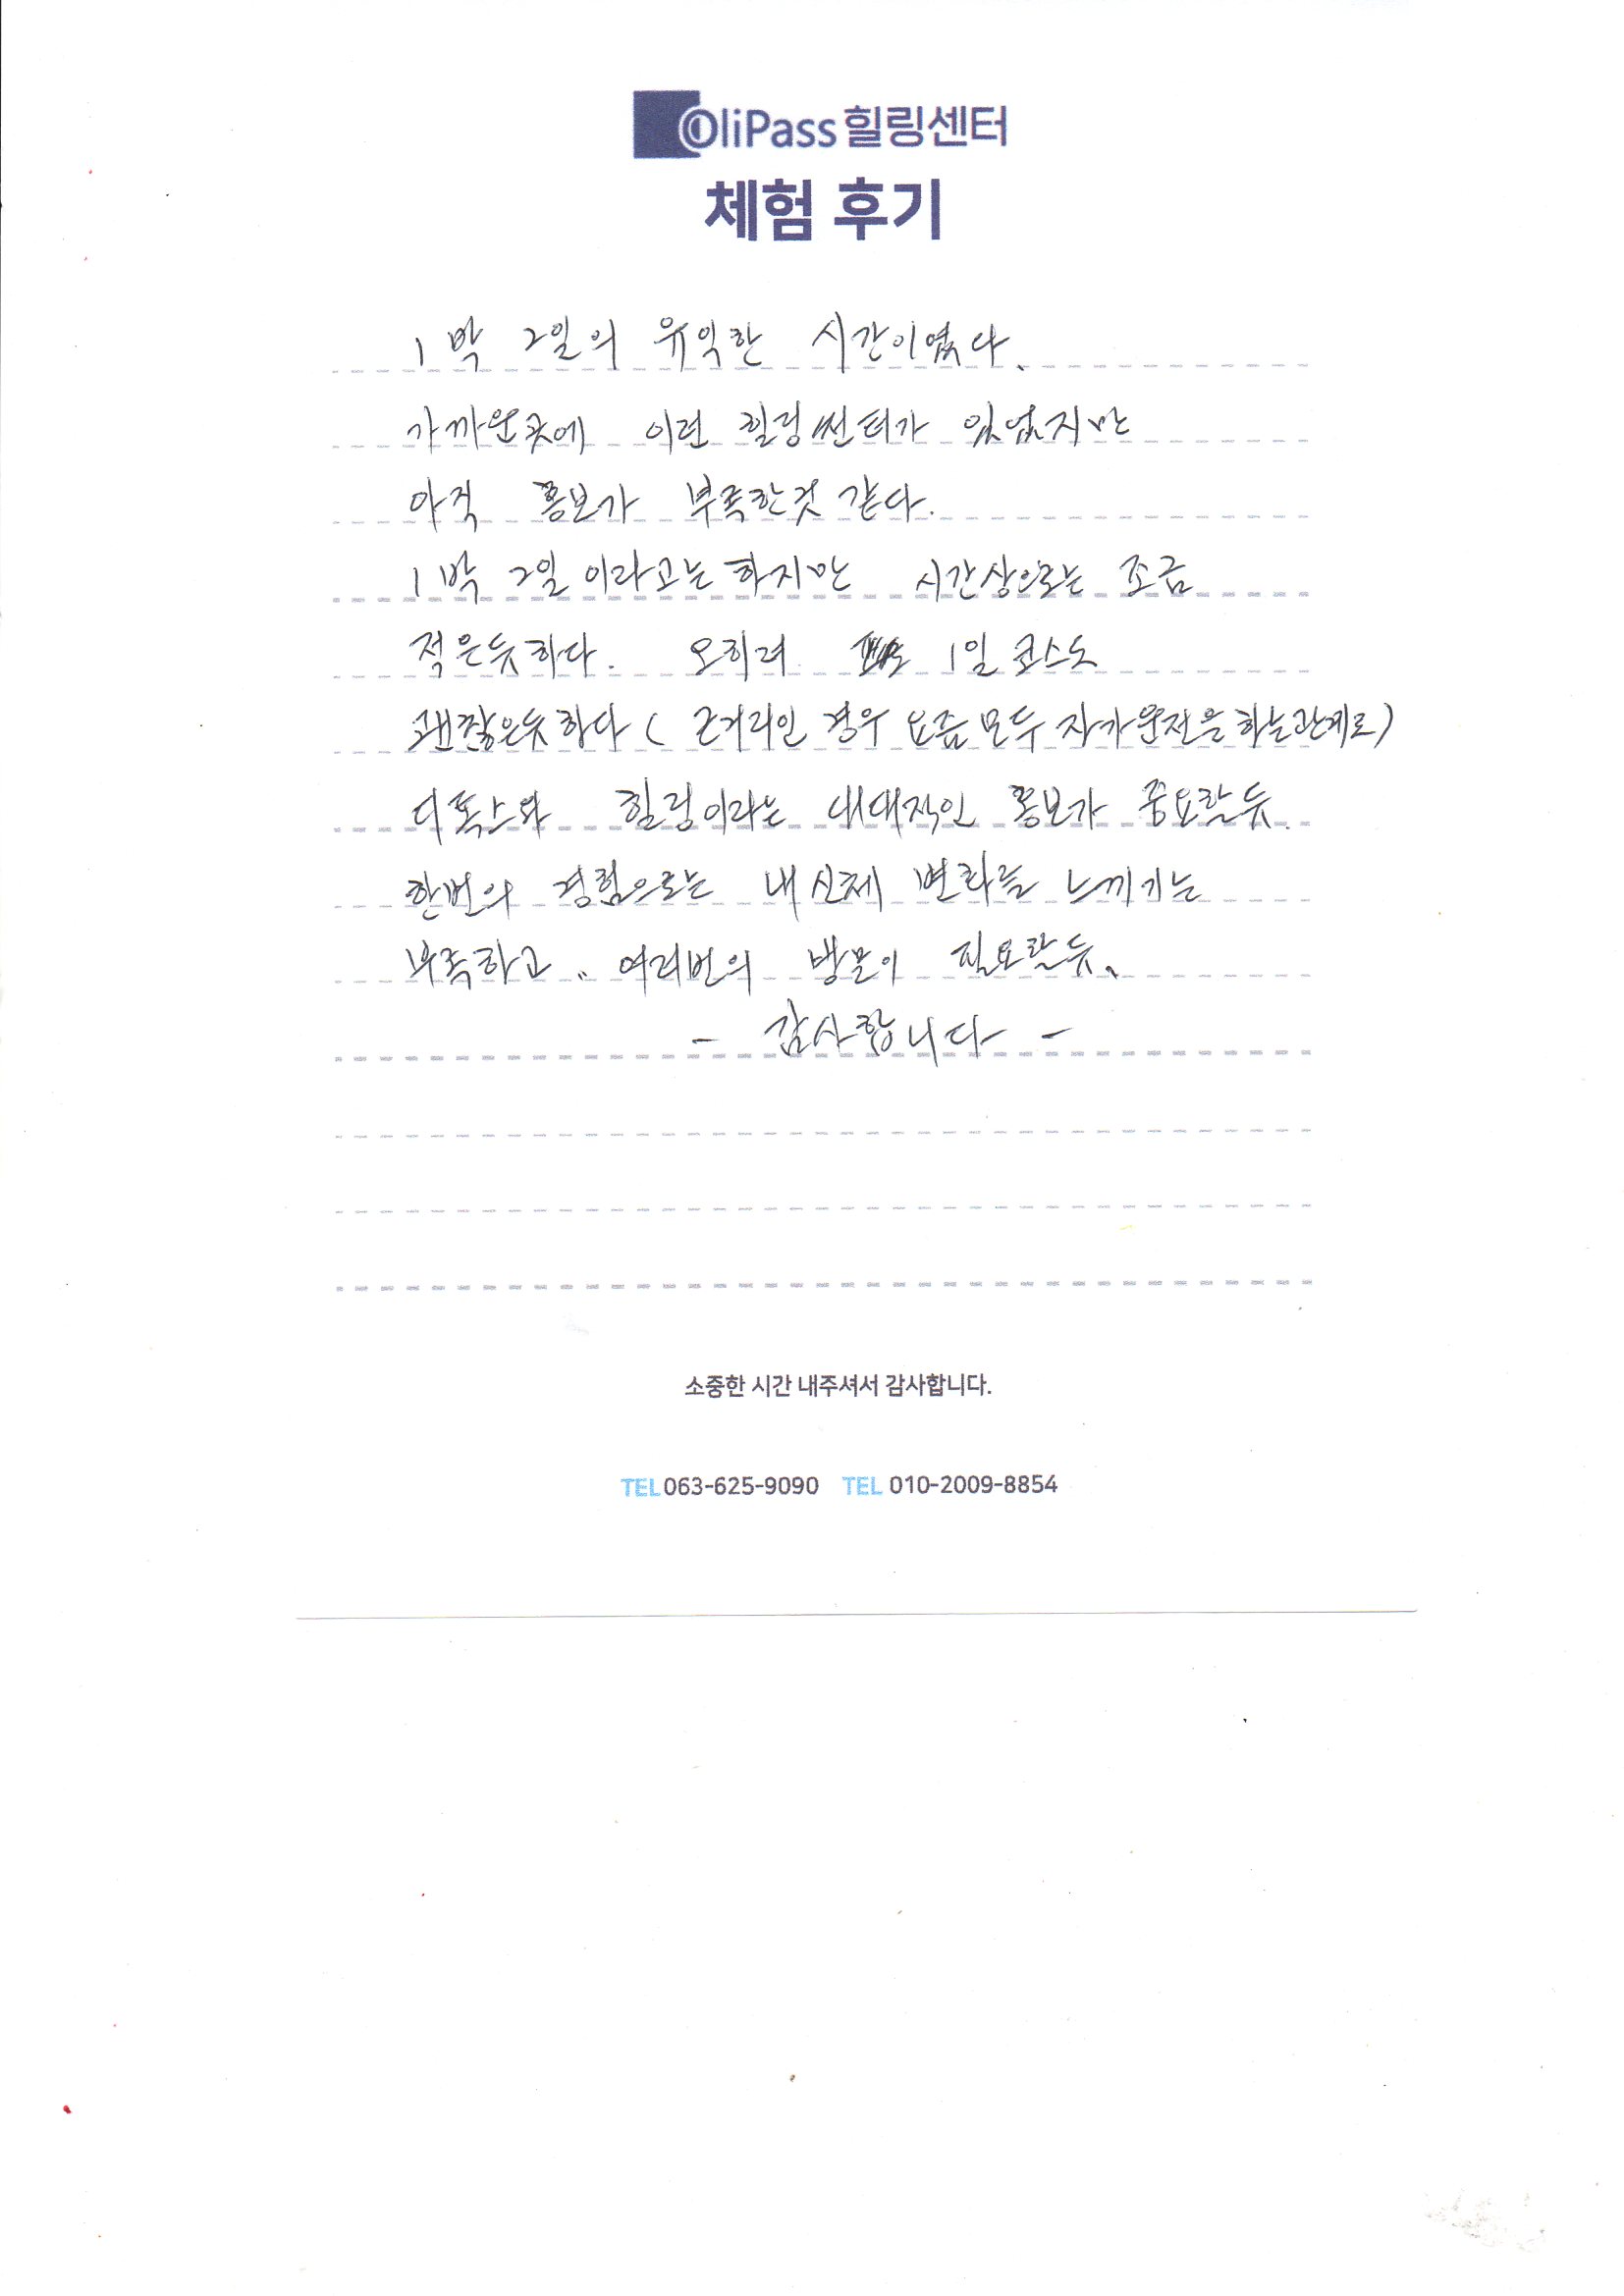 OliPass 힐링센터
체험 후기
1박 2일의 유익한 시간이였다.
가까운곳에 이런 힐링쎈터가 있었지만
아직 홍보가 부족한것 같다.
1박 2일 이라고는 하지만 시간상으로는 조금
적은듯하다. 오히려 1일 코스도
괜찮은듯하다 ( 근거리인 경우 요즘 모두 자가운전을 하는관계로)
디톡스와 힐링이라는 대대적인 홍보가 중요할듯.
한번의 경험으로는 내 신체 변화를 느끼기는
부족하고.. 여러번의 방문이 필요할듯.
- 감사합니다 -
소중한 시간 내주셔서 감사합니다.
TEL 063-625-9090 TEL 010-2009-8854